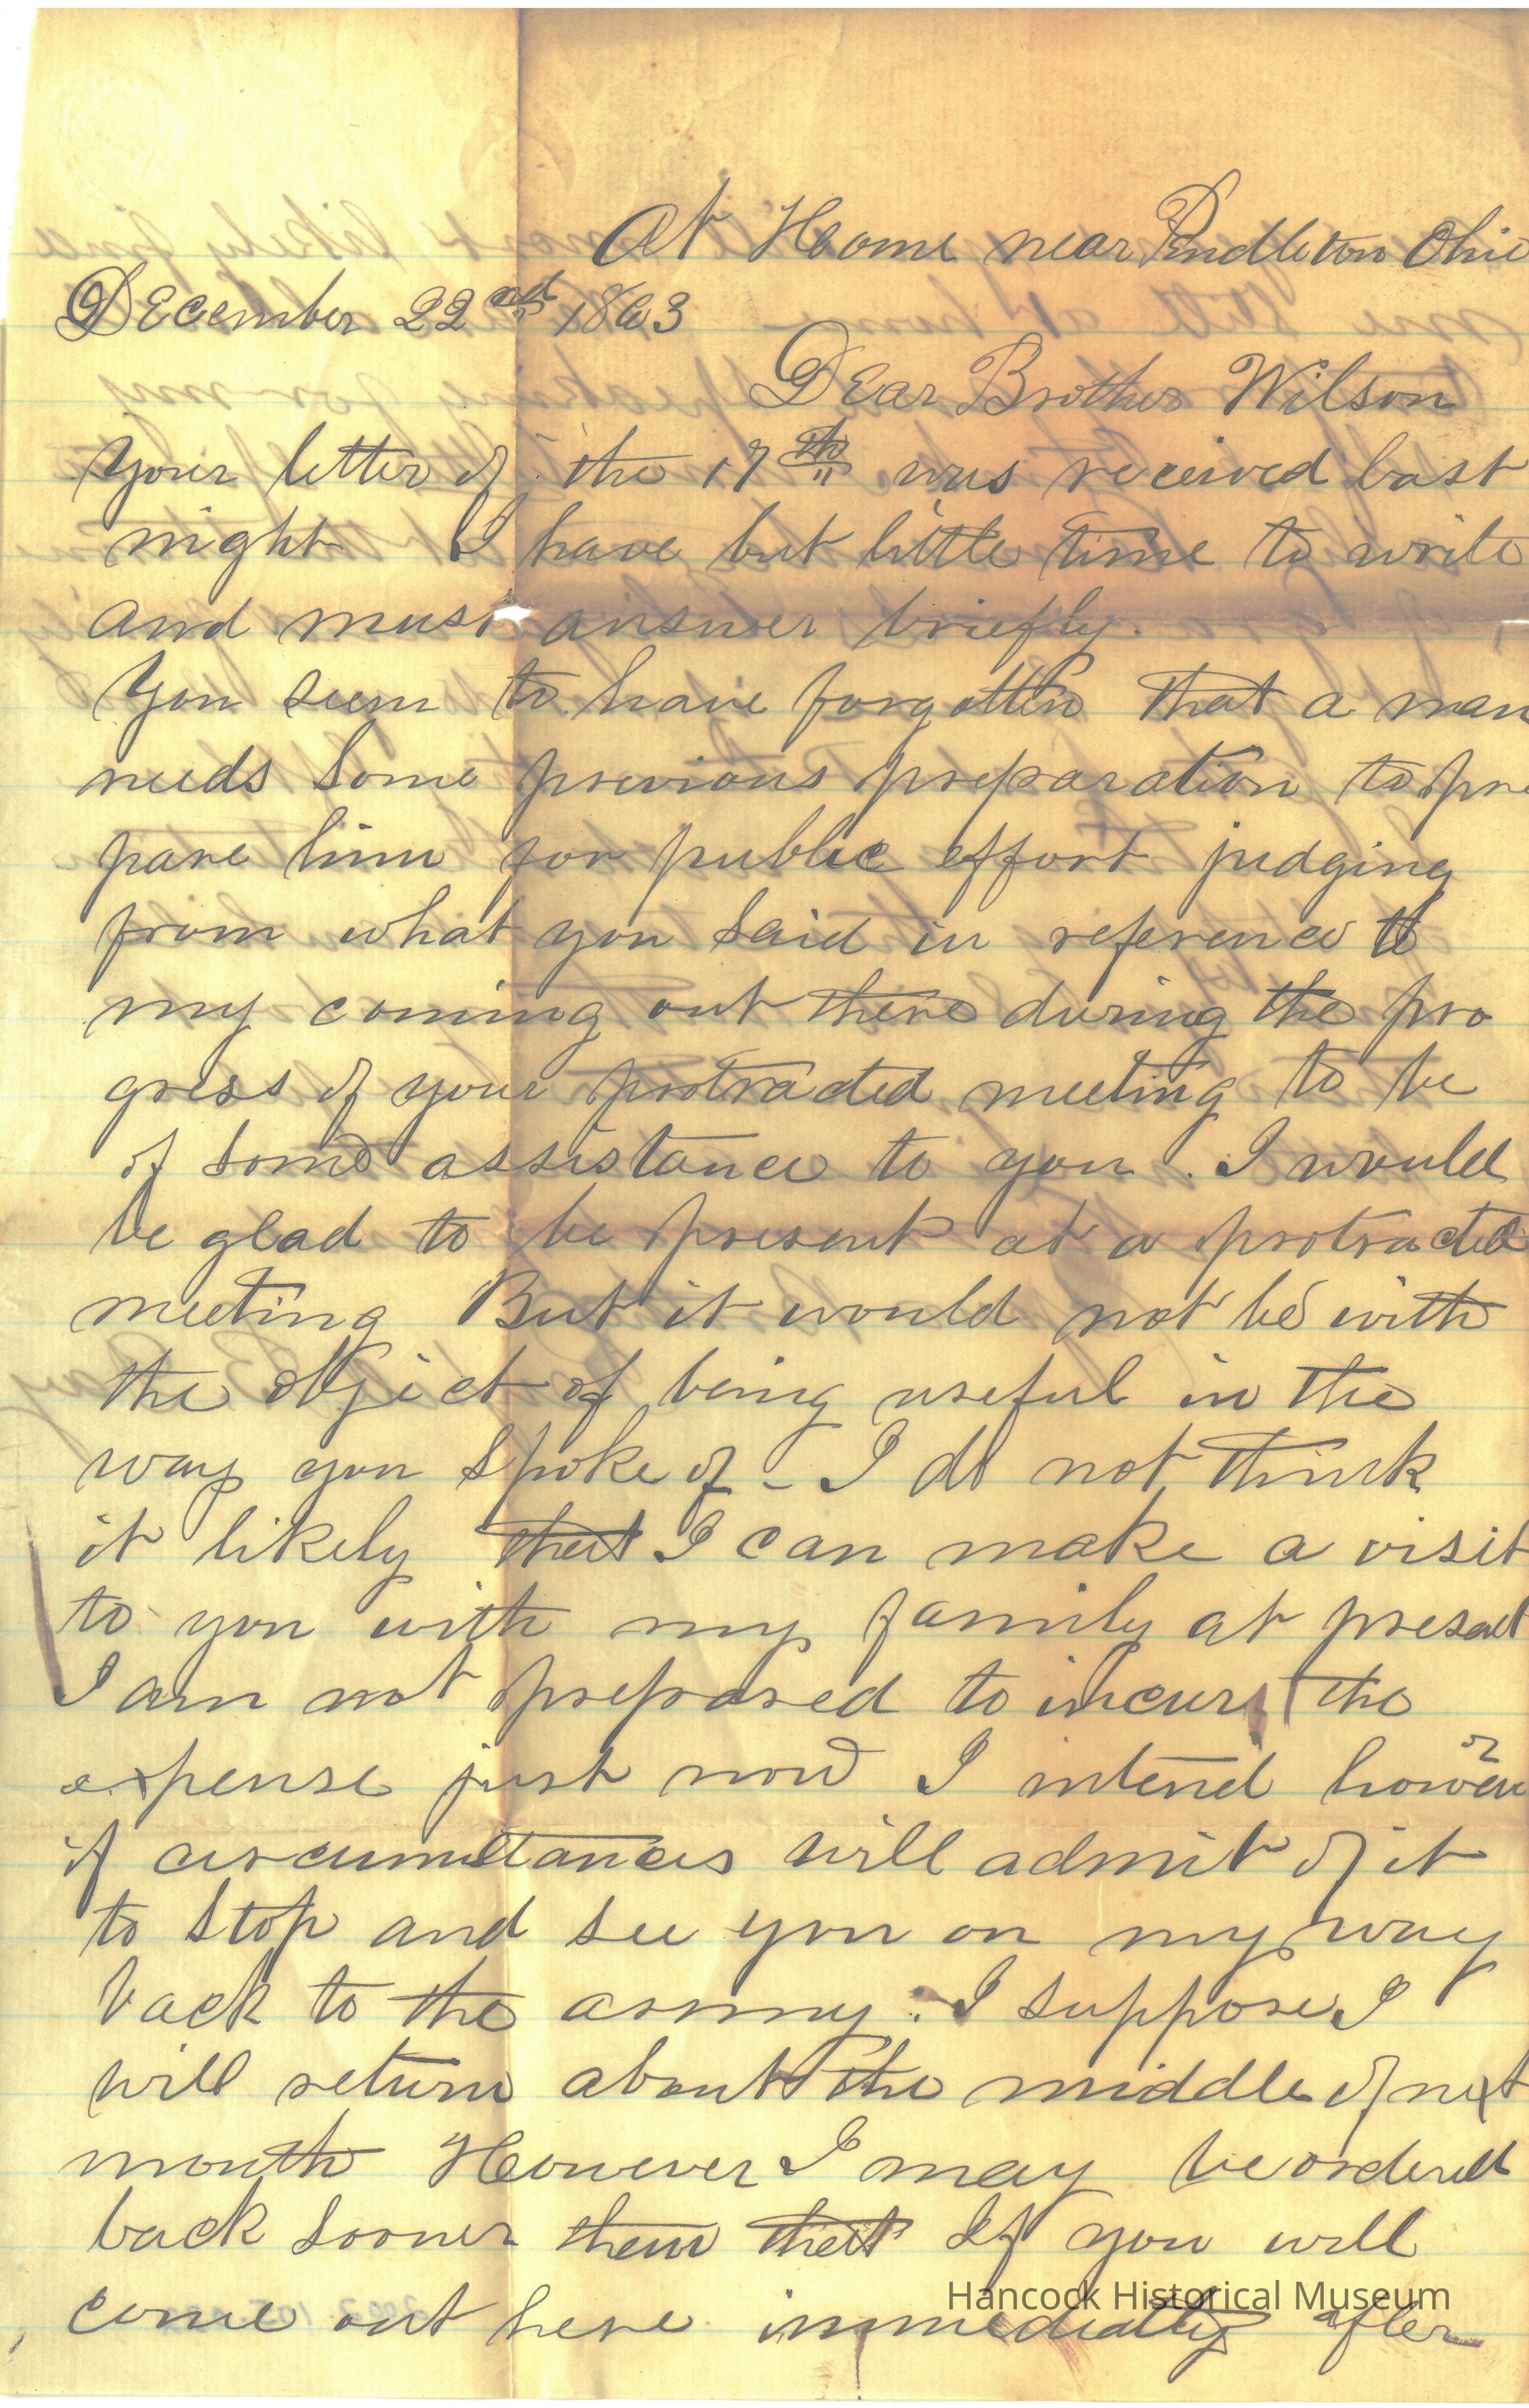 At Home near Pendleton Ohio
December 22nd 1863
Dear Brother Wilson
Your letter of the 17th was received last
night I have but little time to write
and must answer briefly.
You seem to have forgotten that a man
needs some previous preparation to pre
pare him for public effort judging
from what you said in reference to
my coming out there during the pro
gress of your protracted meeting to be
of some assistance to you. I would
be glad to be present at a protracted
meeting But it would not be with
the object of being useful in the
way you spoke of - I do not think
it likely that I can make a visit
to you with my family at present
I am not prepared to incur the
expense just now I intend however
if circumstances will admit of it
to stop and see you on my way
back to the army. I suppose I
will return about the middle of next
month However I may be ordered
back sooner than that If you will
come out here immediatly after
Hancock Historical Museum